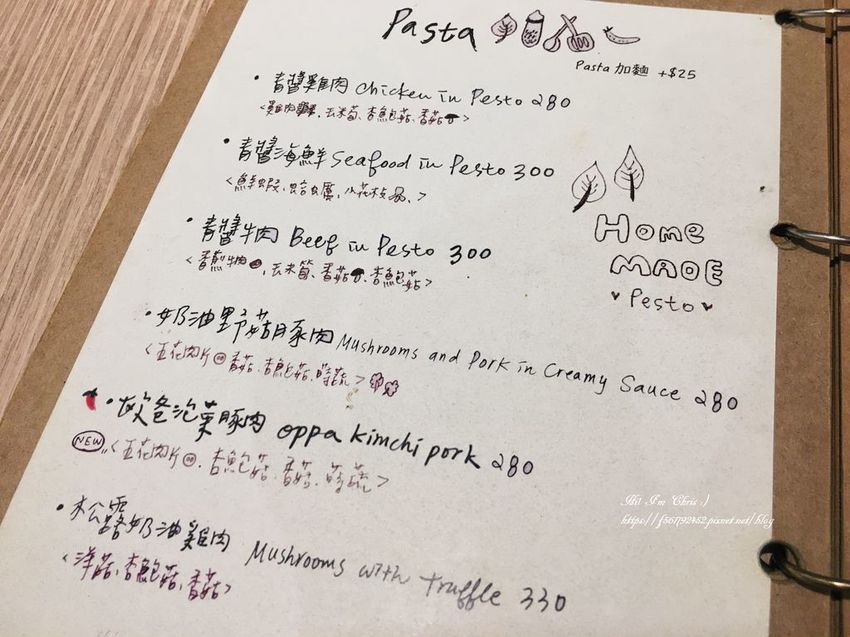 Pasta
Pasta 加麵 +$25
• 青醬雞肉 chicken in Pesto 280
<雞肉、玉米筍、杏鮑菇、香菇>
• 青醬海鮮 Seafood in Pesto 300
<鮮蝦、蛤蠣、小花枝、>
• 青醬牛肉 Beef in Pesto 300
<香煎牛肉、玉米筍、香菇、杏鮑菇>
Home
MADE
Pesto
• 奶油野菇豚肉 Mushrooms and Pork in Creamy Sauce 280
<五花肉片、香菇、杏鮑菇、時蔬>
• 欧爸泡菜豚肉 oppa kimchi pork 280
NEW <五花肉片、杏鮑菇、香菇、時蔬>
• 松露奶油雞肉 Mushrooms with truffle 330
<洋菇、杏鮑菇、香菇>
Hi! I'm Chris :)
https://f56792452.pixnet.net/blog